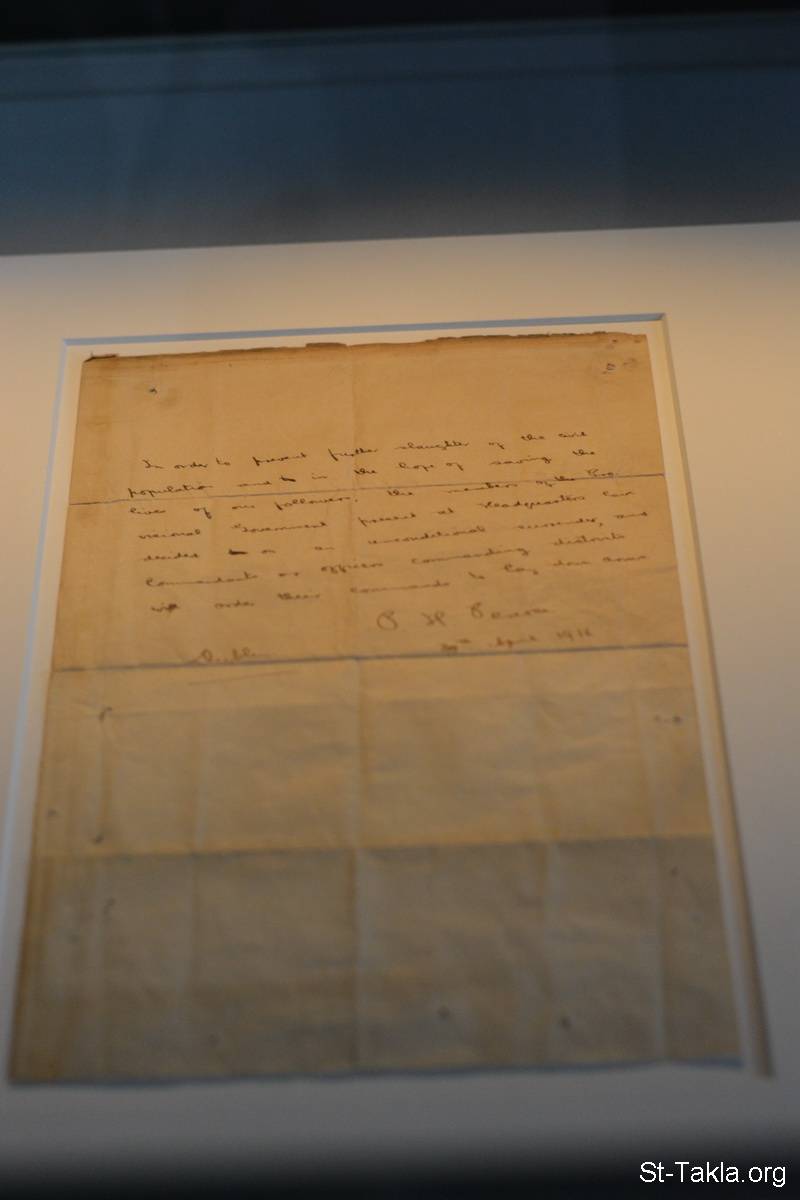 In order to prevent further slaughter of the civil
population and in the hope of saving the
lives of our followers, the members of the Pro-
visional Government present at Headquarters have
decided on an unconditional surrender, and
Commandants or officers commanding districts
will order their commands to lay down arms.
P. H. Pearse
Dublin
29th April 1916
St-Takla.org